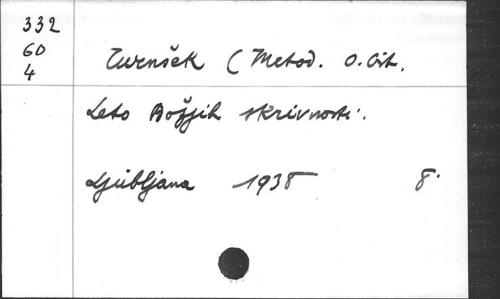 332
60
4
Turnšek (Metod. O. Cist.
Leto Božjih skrivnosti.
Ljubljana 1938 8°